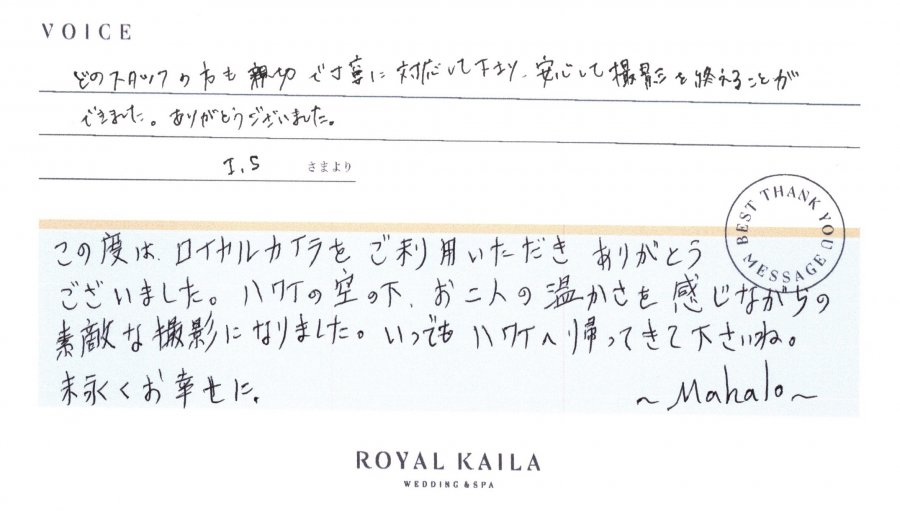 VOICE
どのスタッフの方も親切で丁寧に対応して下さり、安心して撮影を終えることが
できました。ありがとうございました。
I.S さまより
BEST THANK YOU MESSAGE
この度は、ロイヤルカイラをご利用いただきありがとう
ございました。ハワイの空の下、お二人の温かさを感じながらの
素敵な撮影になりました。いつでもハワイへ帰ってきて下さいね。
末永くお幸せに。 ~Mahalo~
ROYAL KAILA
WEDDING & SPA